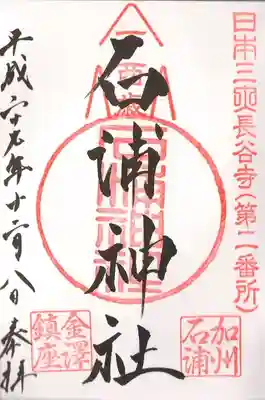 日本三大長谷寺(第二番所)
加州
石浦
石浦神社
石浦神社
平成二十九年十二月八日 奉拝
金澤
鎮座